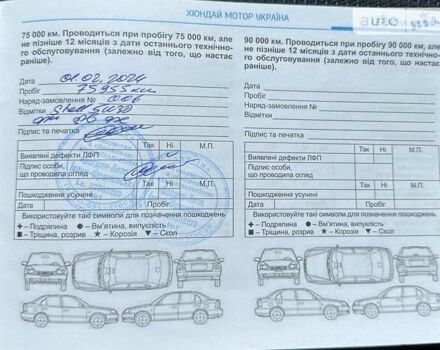 ХЮНДАЙ МОТОР УКРАЇНА
75 000 км. Проводиться при пробігу 75 000 км, але
не пізніше 12 місяців з дати останнього технічно-
го обслуговування (залежно від того, що настає
раніше).
Дата 01.02.2024
Пробіг 75955 км
Наряд-замовлення № 006
Відмітки Shell 5W30
Підпис та печатка
Так Ні М.П.
Виявлені дефекти ЛФП
Підпис особи,
що проводила огляд
Так Ні М.П.
Пошкодження усунені
Дата Пробіг
Використовуйте такі символи для позначення пошкоджень
+ – Подряпина ● – Вм'ятина, випуклість
■ – Тріщина, розрив ★ – Корозія ▼ – Скол
90 000 км. Проводиться при пробігу 90 000 км, але
не пізніше 12 місяців з дати останнього технічно-
го обслуговування (залежно від того, що настає
раніше).
Дата
Пробіг
Наряд-замовлення №
Відмітки
Підпис та печатка
Так Ні М.П.
Виявлені дефекти ЛФП
Підпис особи,
що проводила огляд
Так Ні М.П.
Пошкодження усунені
Дата Пробіг
Використовуйте такі символи для позначення пошкоджень
+ – Подряпина ● – Вм'ятина, випуклість
■ – Тріщина, розрив ★ – Корозія ▼ – Скол